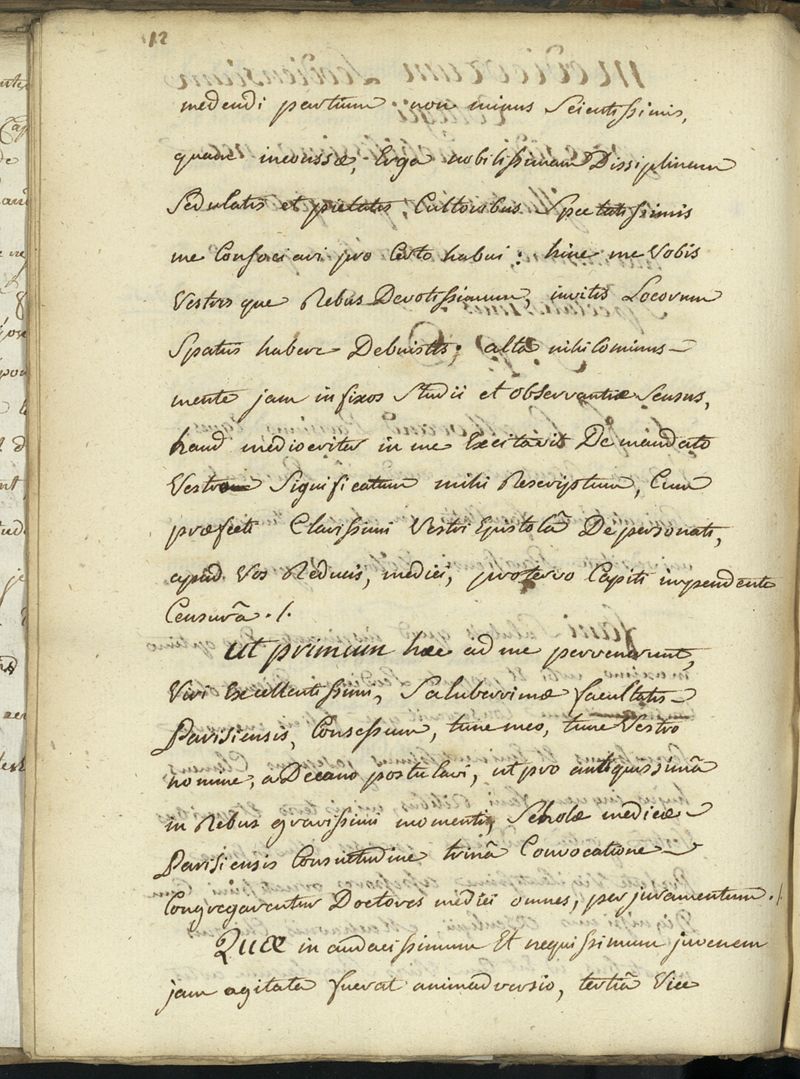 12
medendi partium non minus Scientissimis,
quam inconssæ, Erga nobilissimam Dissiplinam
Sedulatis et pietatis Cultoribus Spectatissimis
me Consociari pro Certo habui : hinc me Vobis
Vestrisque Rebus Devotissimum, invitis Locorum
Spatiis habere Debuistis; alta nihilominus
mente jam infixos Studii et observantiæ Sensus,
haud mediocriter in me Excitavit De mandato
Vestro Significatum mihi Rescriptum, Cum
præfecti Clarissimi Vestri Epistolâ De personati,
apud Vos Reducis, medici, protervo Capiti impendente
Censurâ ./.
Ut primum hæc ad me pervenerunt,
Viri Excellentissimi, Saluberrimæ facultatis
Parisiensis, Consessum, tunc meo, tunc Vestro
nomine, a Decano postulavi, ut pro antiquissimâ
in Rebus gravissimi momenti, Scholæ medicæ
Parisiensis Consuetudine trinâ Convocatione
Congregarentur Doctores medici omnes, per juramentum ./.
Quæ in audacissimum Et nequissimum juvenem
jam agitata fuerat animadversio, tertiâ Vice